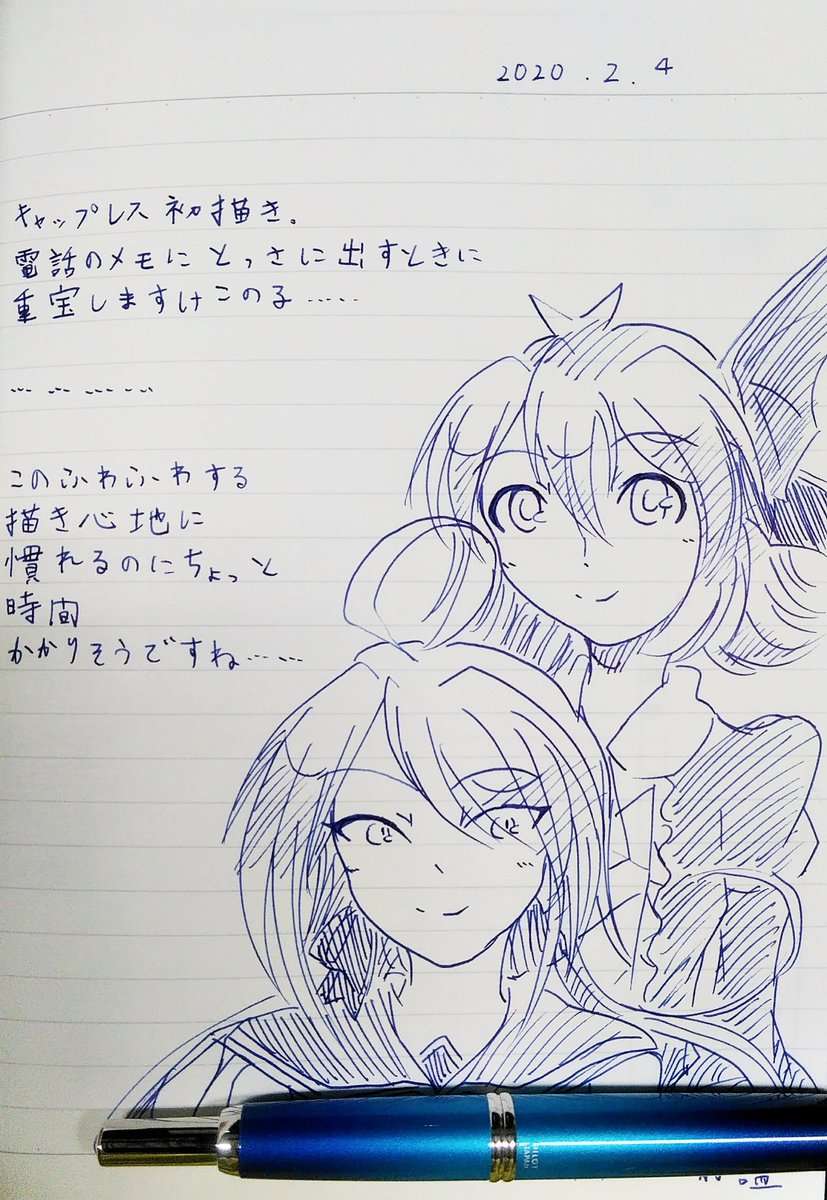 2020.2.4
キャップレス初描き。
電話のメモにとっさに出すときに
重宝しますけこの子……
… … … …
このふわふわする
描き心地に
慣れるのにちょっと
時間
かかりそうですね……
PILOT
JAPAN